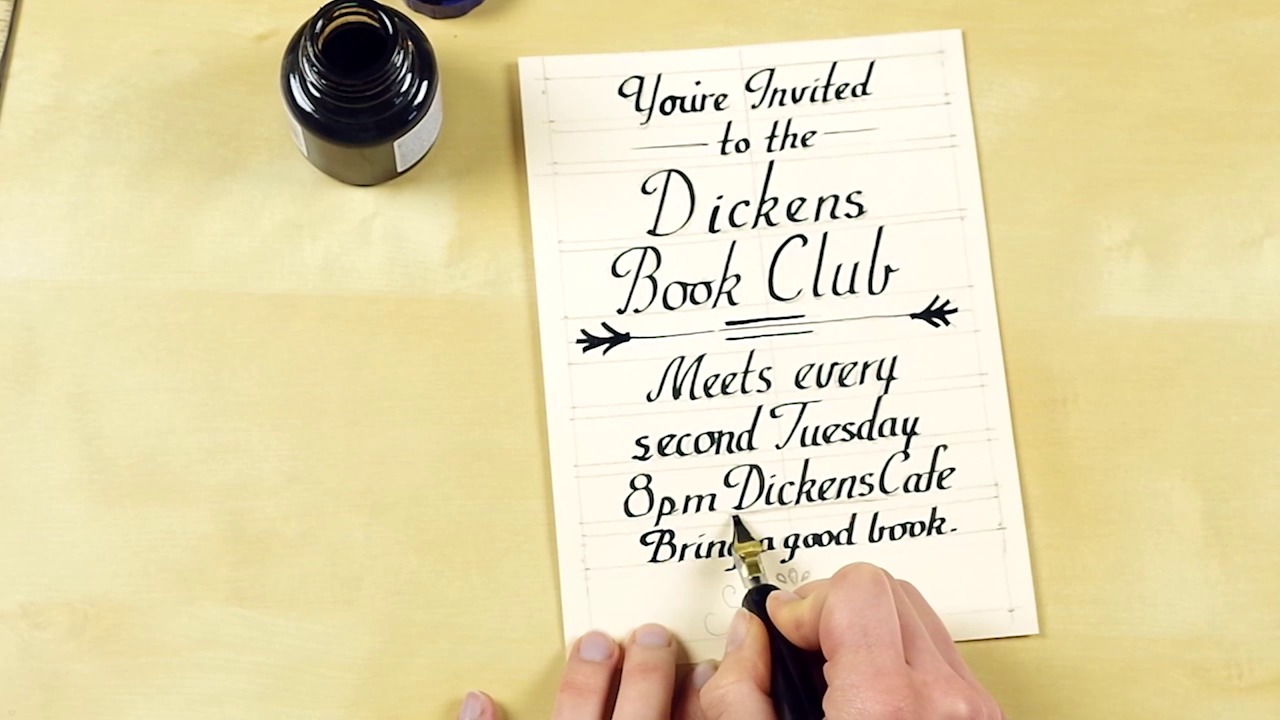 You're Invited
to the
Dickens
Book Club
Meets every
second Tuesday
8pm Dickens Cafe
Bring a good book.